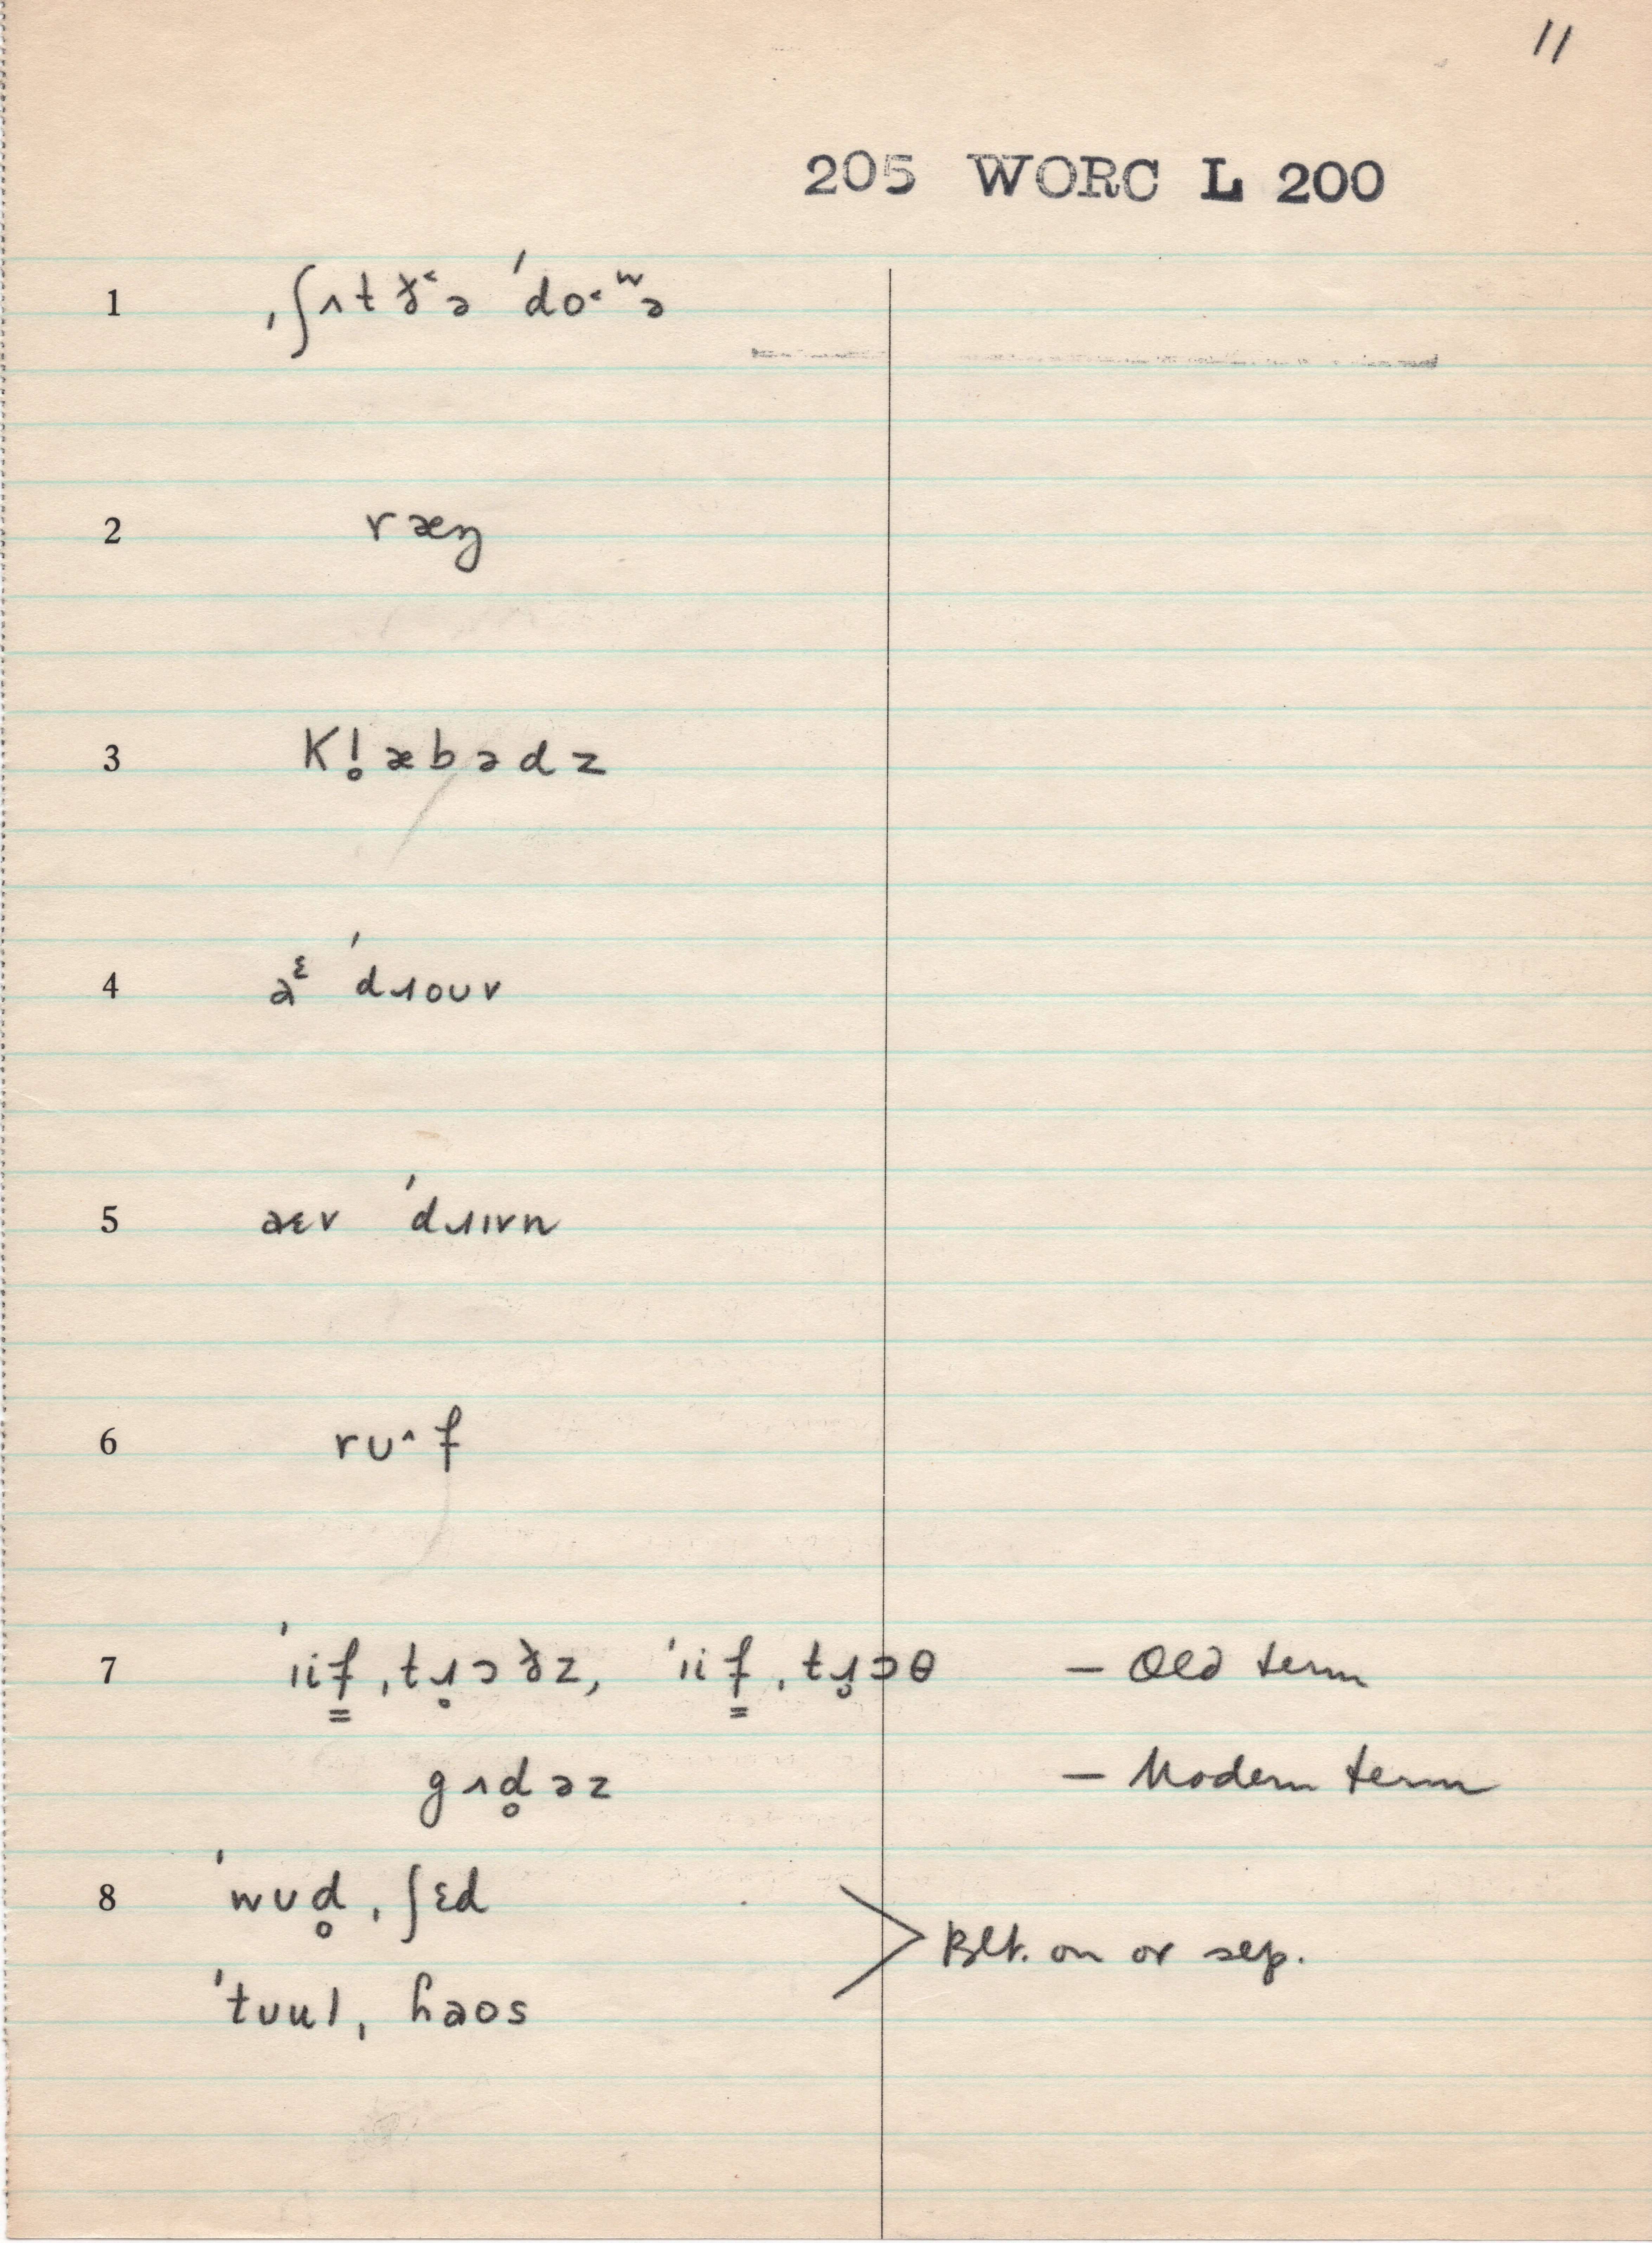 11
205 WORC L 200
1 ˌʃʌt ɤ˂ə ˈdo˂ʷə
2 ræŋ
3 Kl̥æbədz
4 aᵋ ˈdɹoʊv
5 aɛv ˈdɹɪvn
6 rʊ^f
7 ˈɪif̳ˌtɹ̥ɔɤz, ˈɪif̳ˌtɹ̥ɔθ – Old term
gʌd̥əz – Modern term
8 ˈwʊd̥ˌʃɛd
ˈtʊulˌhaos
Blt. on or sep.